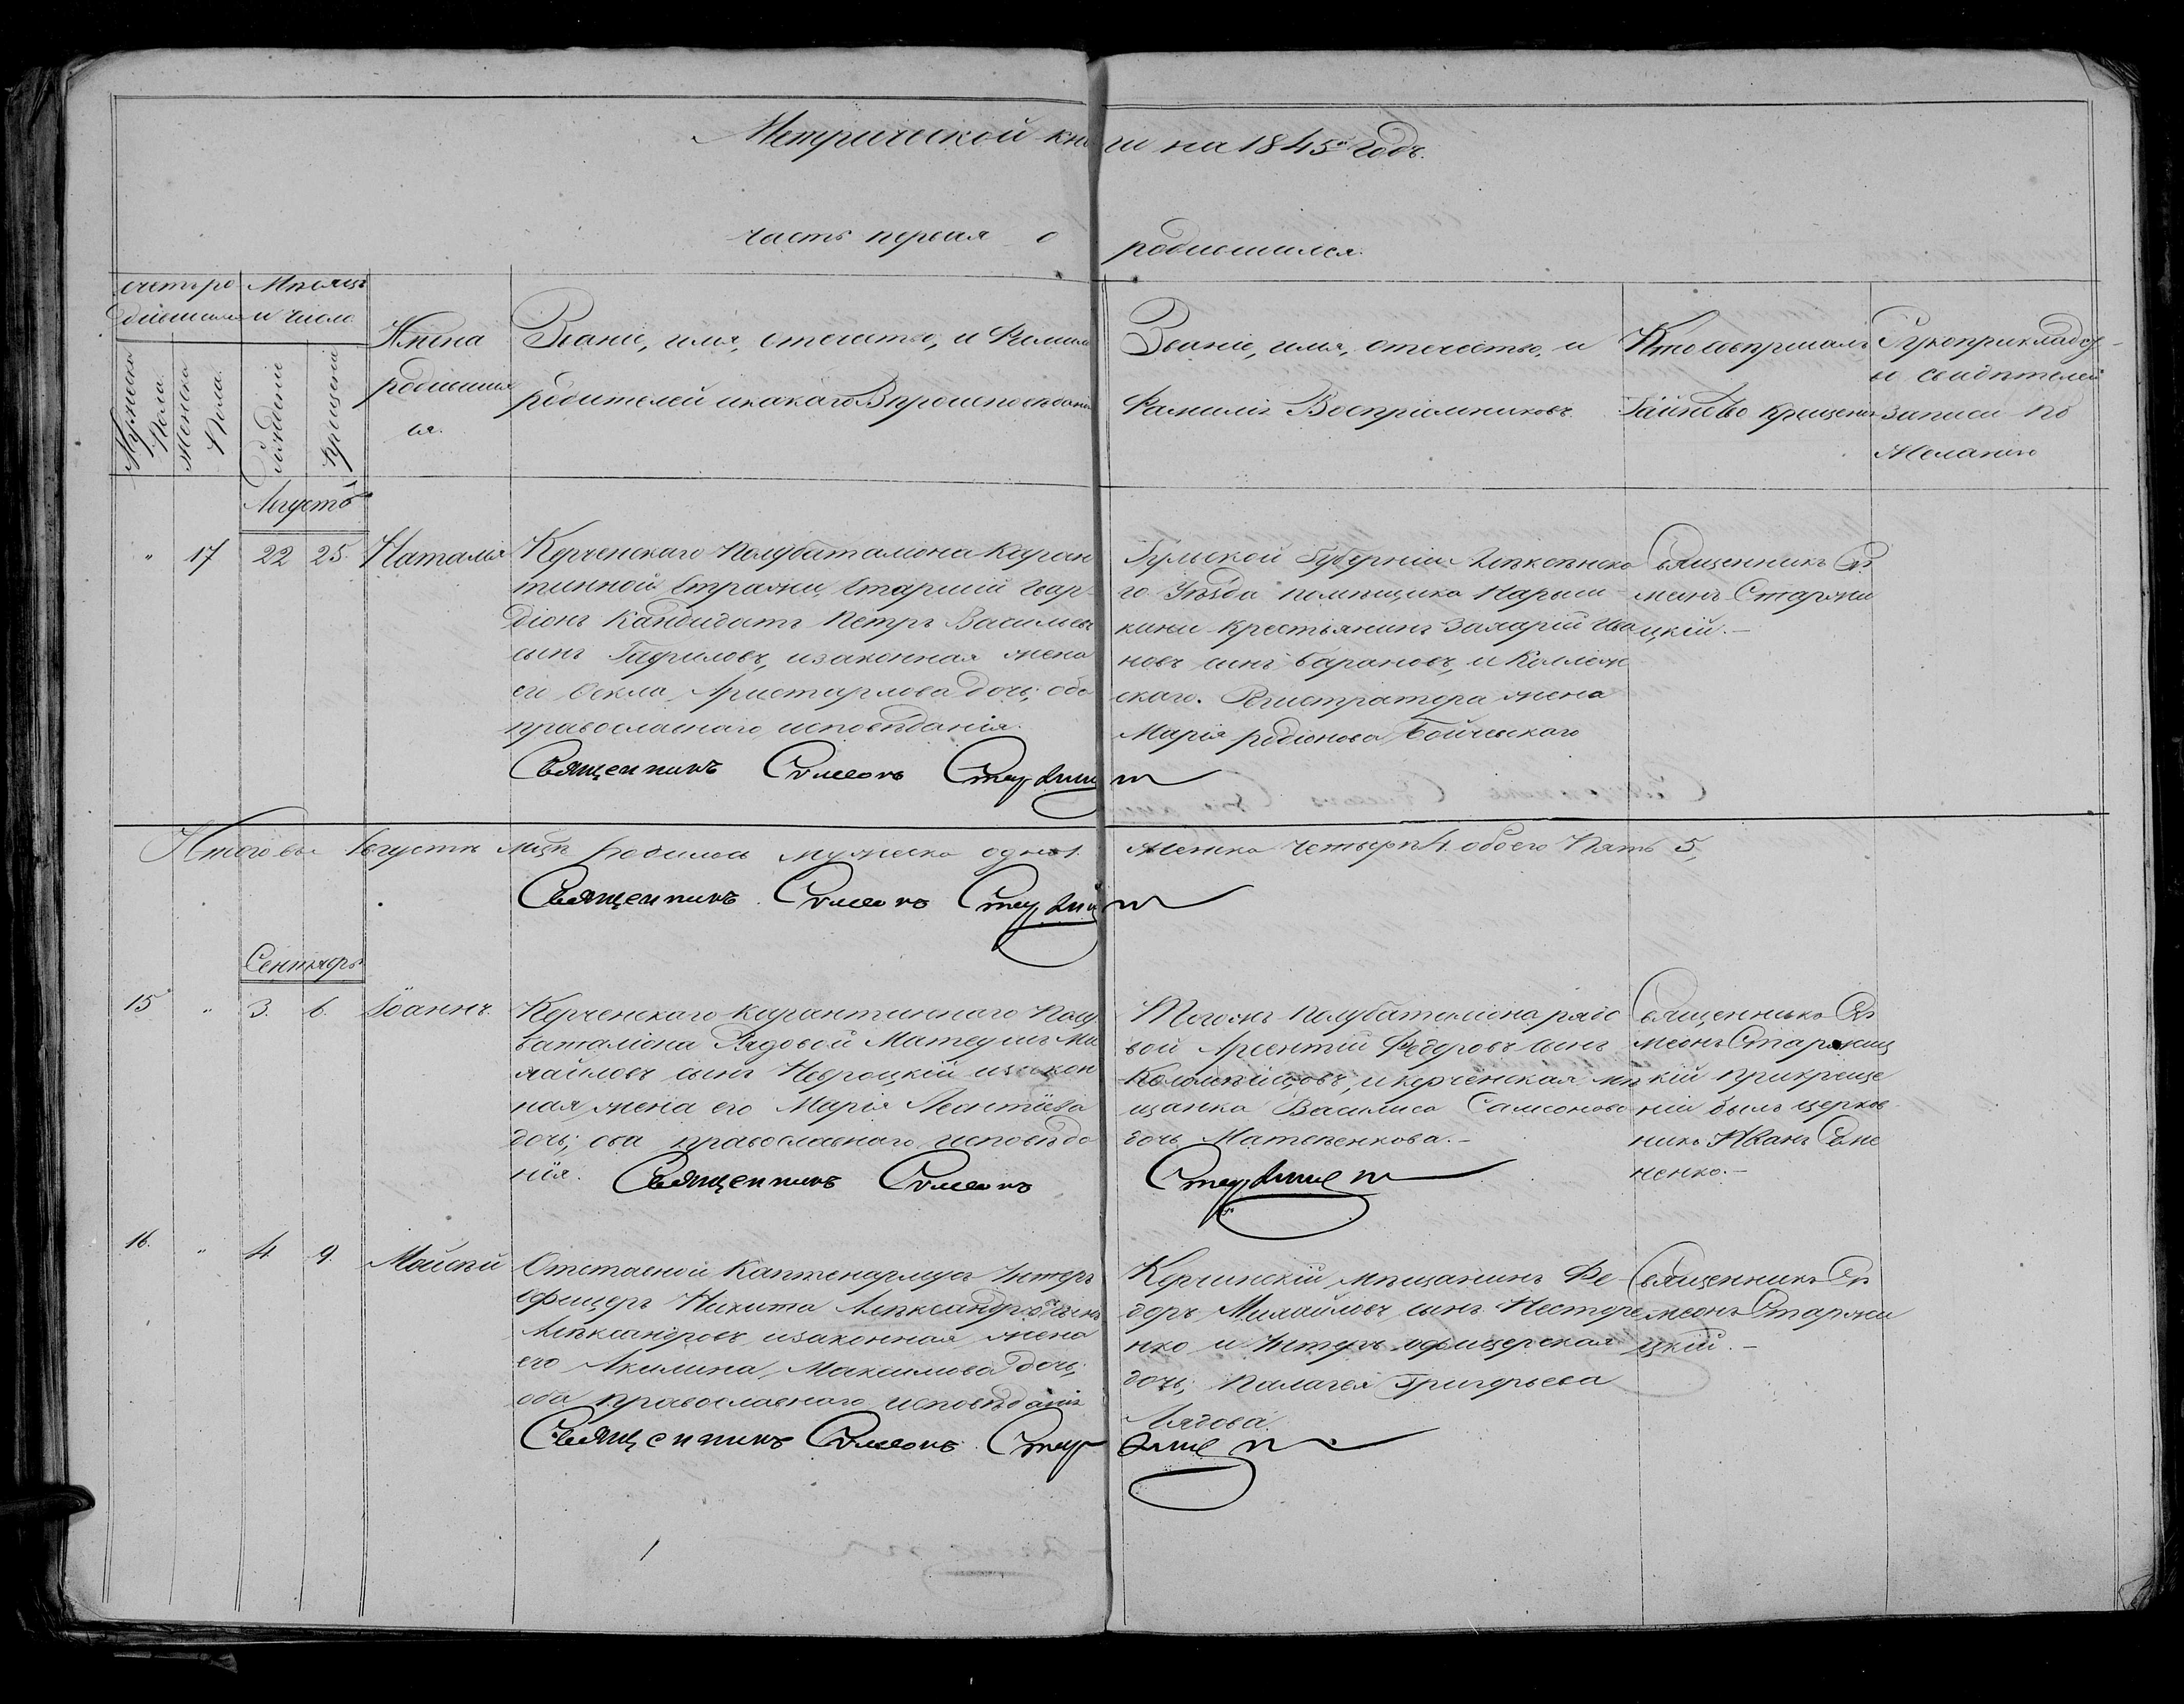 Метрической книги на 1845й годъ.
часть первая о родившихся.
счетъ ро
дившихся
Мѣсяцъ
и число
Мужеска
Пола.
Женска
Пола.
Рожденіе
Крещеніе
Имѣна
родивших
ся.
Званіе, имя, отечество, и Фамилія
родителей икакаго Вѣроисповѣданія
Званіе, имя, отечество, и
Фамилія Воспріемниковъ.
Кто совершалъ
Таинство крещенія
Рукоприкладст
во свидѣтелей
записи по
желанію
Августъ
" 17 22 25. Наталія
Керченскаго Полубаталіона Каран
тинной Стражи, Старшій Гвар
діонъ Кандидатъ Петръ Васильевъ
сынъ Гавриловъ, изаконная жена
его Ѳекла Аристархова дочь; оба
православнаго исповѣданія.
Тульской Губерніи
го Уѣзда помѣщика Нарыш
кина Крестьянинъ Захарій Ива
новъ сынъ Барановъ, и Коллеж
скаго. Регистратора жена
Марія родіонова Бойчевскаго
Священникъ Си
меонъ Стажи
цкій.-
Священникъ Симеонъ
Итого въ Августѣ мцѣ родилось мужеска одно 1. женска четыри 4. обоего Пять 5,
Священникъ Симеонъ
Сентябрь
15 " 3. 6. Іоаннъ.
Керченскаго Карантиннаго Полу
баталіона Рядовой Матеушъ Ми
хайловъ сынъ Невроцкій изакон
ная жена его Марія Леонтіева
дочь; оба православнаго исповѣда
нія. Священникъ Симеонъ
Тогожъ Полубаталіона рядо
вой Арсентій Федоровъ сынъ
Коломѣйцовъ, и керченская мѣ
щанка Василиса Самсонова
дочь Матвѣенкова.-
Священникъ Си
меонъ Стажиц
кій прикреще
ніи былъ церков
никъ Иванъ
ненко.-
16. " 4. 9. Моисѣй
Отставной Каптенармусъ Унтеръ
Офицеръ Никита Алѣксандровъ сынъ
Алѣксандровъ изаконная жена
его Акилина, Максимова дочь;
оба православнаго исповѣданія
Керчинскій мѣщанинъ Фе
доръ Михайловъ сынъ Нестере
нко и Унтеръ офицерская
дочь; Палагея Григорьева
Лядова.
Священникъ Си
меонъ Стажи
цкій.-
Священникъ Симеонъ